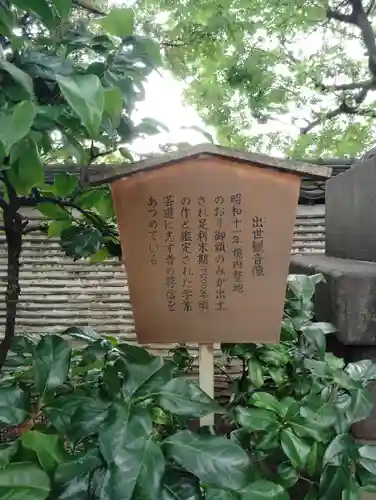 出世観音像
昭和十一年境内整地
のおり御頭のみが出土
され足利末期一六〇〇年頃
の作と鑑定された学業
芸道に志す者の尊信を
あつめている